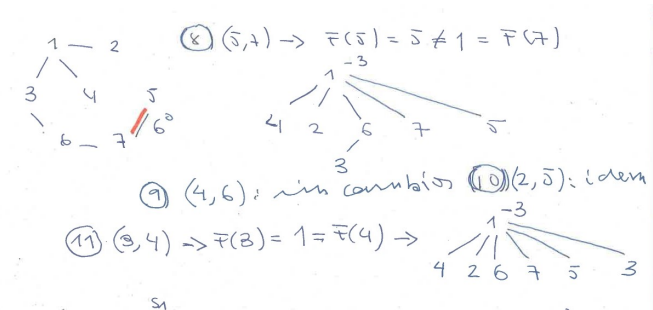 1 — 2
3 4 5
6 — 7 6°
⑧ (5,7) -> F(5) = 5 ≠ 1 = F(7)
1 -3
4 2 6 7 5
3
⑨ (4,6): sin cambios ⑩ (2,5): idem
⑪ (3,4) -> F(3) = 1 = F(4) ->
1 -3
4 2 6 7 5 3